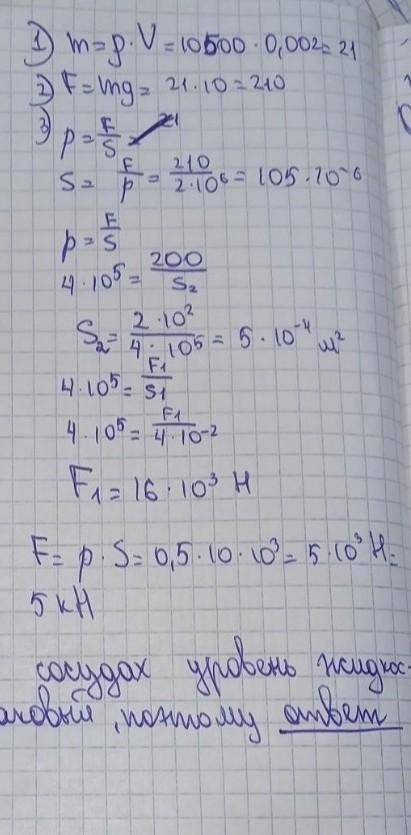 1) m = ρ · V = 10500 · 0,002 = 21
2) F = mg = 21 · 10 = 210
3) p = F/S =
S = F/p = 210/2·10⁶ = 105 · 10⁻⁶
p = F/S
4 · 10⁵ = 200/S₂
S₂ = 2 · 10²/4 · 10⁵ = 5 · 10⁻⁴ м²
4 · 10⁵ = F₁/S₁
4 · 10⁵ = F₁/4·10⁻²
F₁ = 16 · 10³ Н
F = p · S = 0,5 · 10 · 10³ = 5 · 10³ Н =
5 кН
сосудах уровень жидкос-
аковый, поэтому ответ